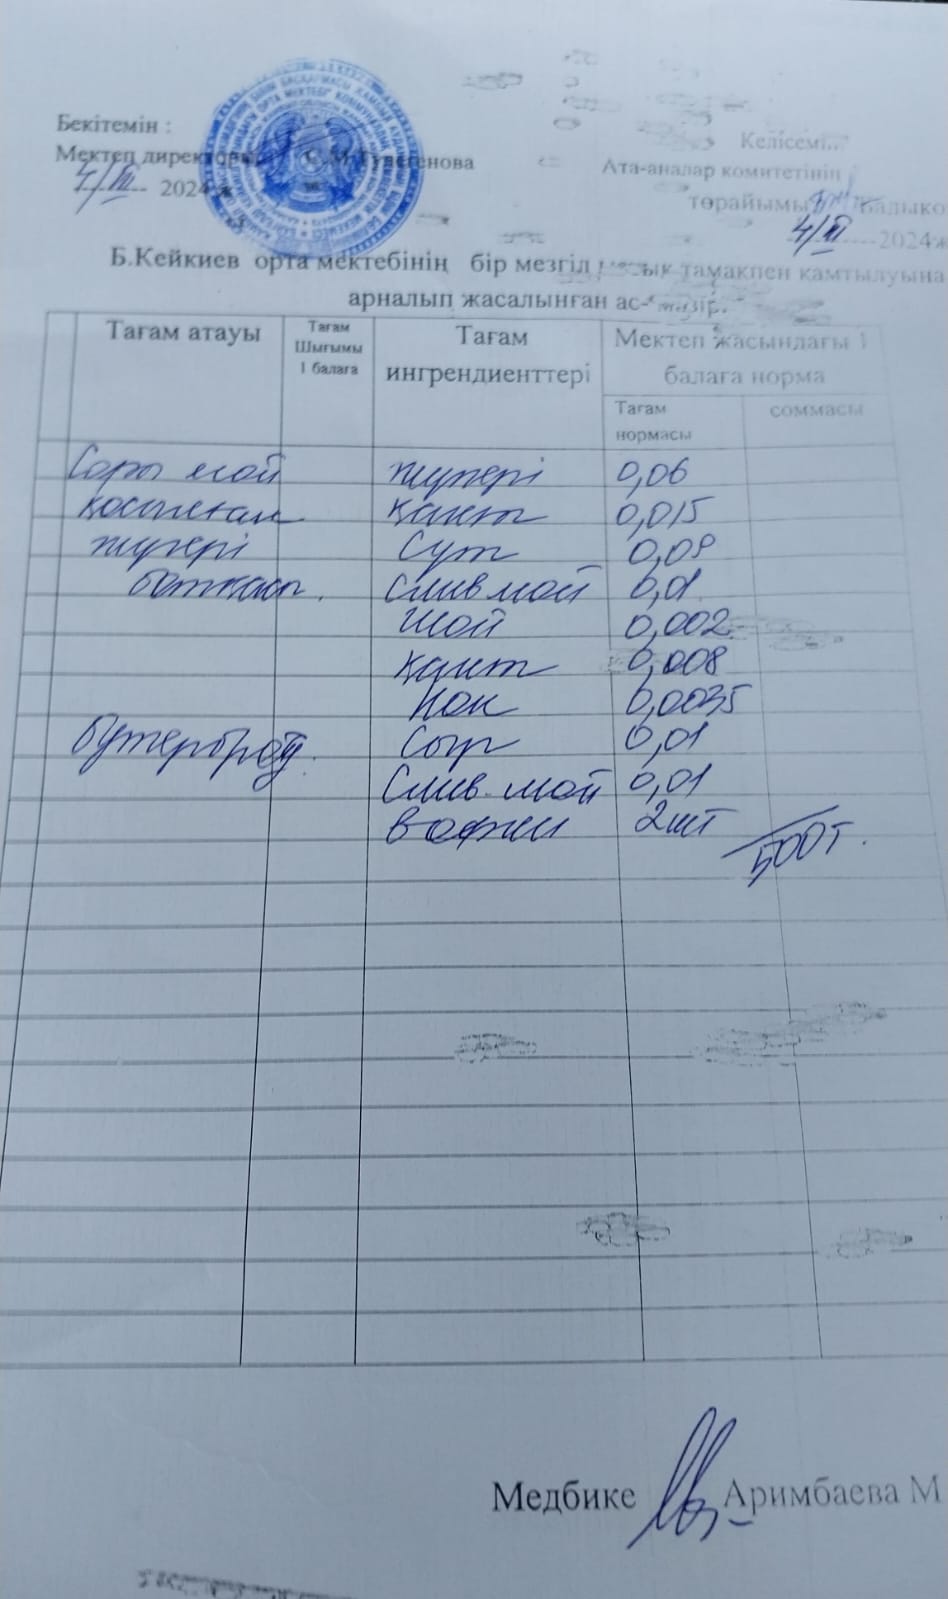 Бекітемін :
Келісемін
Мектеп директоры С.М Тулегенова
Ата-аналар комитетінің
4/ІІІ 2024ж
төрайымы
4/ІІІ 2024ж
Б.Кейкиев орта мектебінің бір мезгіл ыстық тамақпен қамтылуына
арналып жасалынған ас-мәзір.
Тағам атауы
Тағам
Шығымы
1 балаға
Тағам
ингрендиенттері
Мектеп жасындағы 1
балаға норма
Тағам
нормасы
соммасы
Сары май жүгері 0,06
қосылған қант 0,015
жүгері Сүт 0,09
ботқасы. Слив май 0,01
Шай 0,002
қант 0,008
Нан 0,0035
бутерброд. Сыр 0,01
Слив. май 0,01
вафли 2шт
500т.
Медбике Аримбаева М